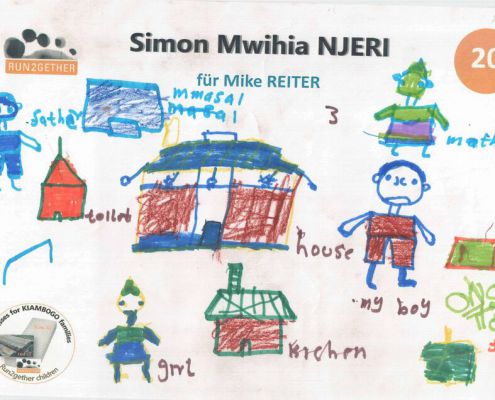 Simon Mwihia NJERI
20
für Mike REITER
RUN2GETHER
mmasai
masai
father
3
math
toilet
house
my boy
girl
kitchen
ses for KIAMBOGO families
Run2gether children